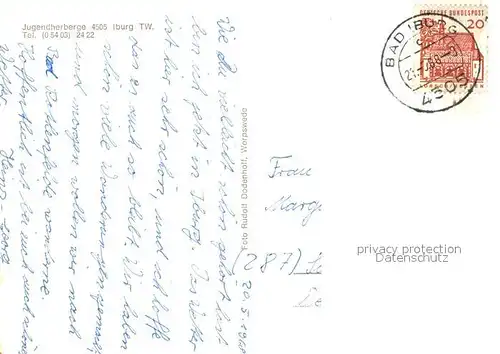 Jugendherberge 4505 Iburg TW.
Tel. (0 54 03) 24 22
20.5.1968
Wie Du vielleicht schon gehört hast
bin ich jetzt in Iburg. Das Wetter
ist hier sehr schön, und ich hoffe
das es auch so bleibt. Wir haben
schon viele Wanderungen gemacht
und morgen wollen wir nach
Bad Rothenfelde wandern.
Hoffentlich ist bei euch auch schönes
Wetter
Foto Rudolf Dodenhoff, Worpswede
Frau
Marg
(287)
DEUTSCHE BUNDESPOST
20
BAD IBURG
4505
privacy protection
Datenschutz